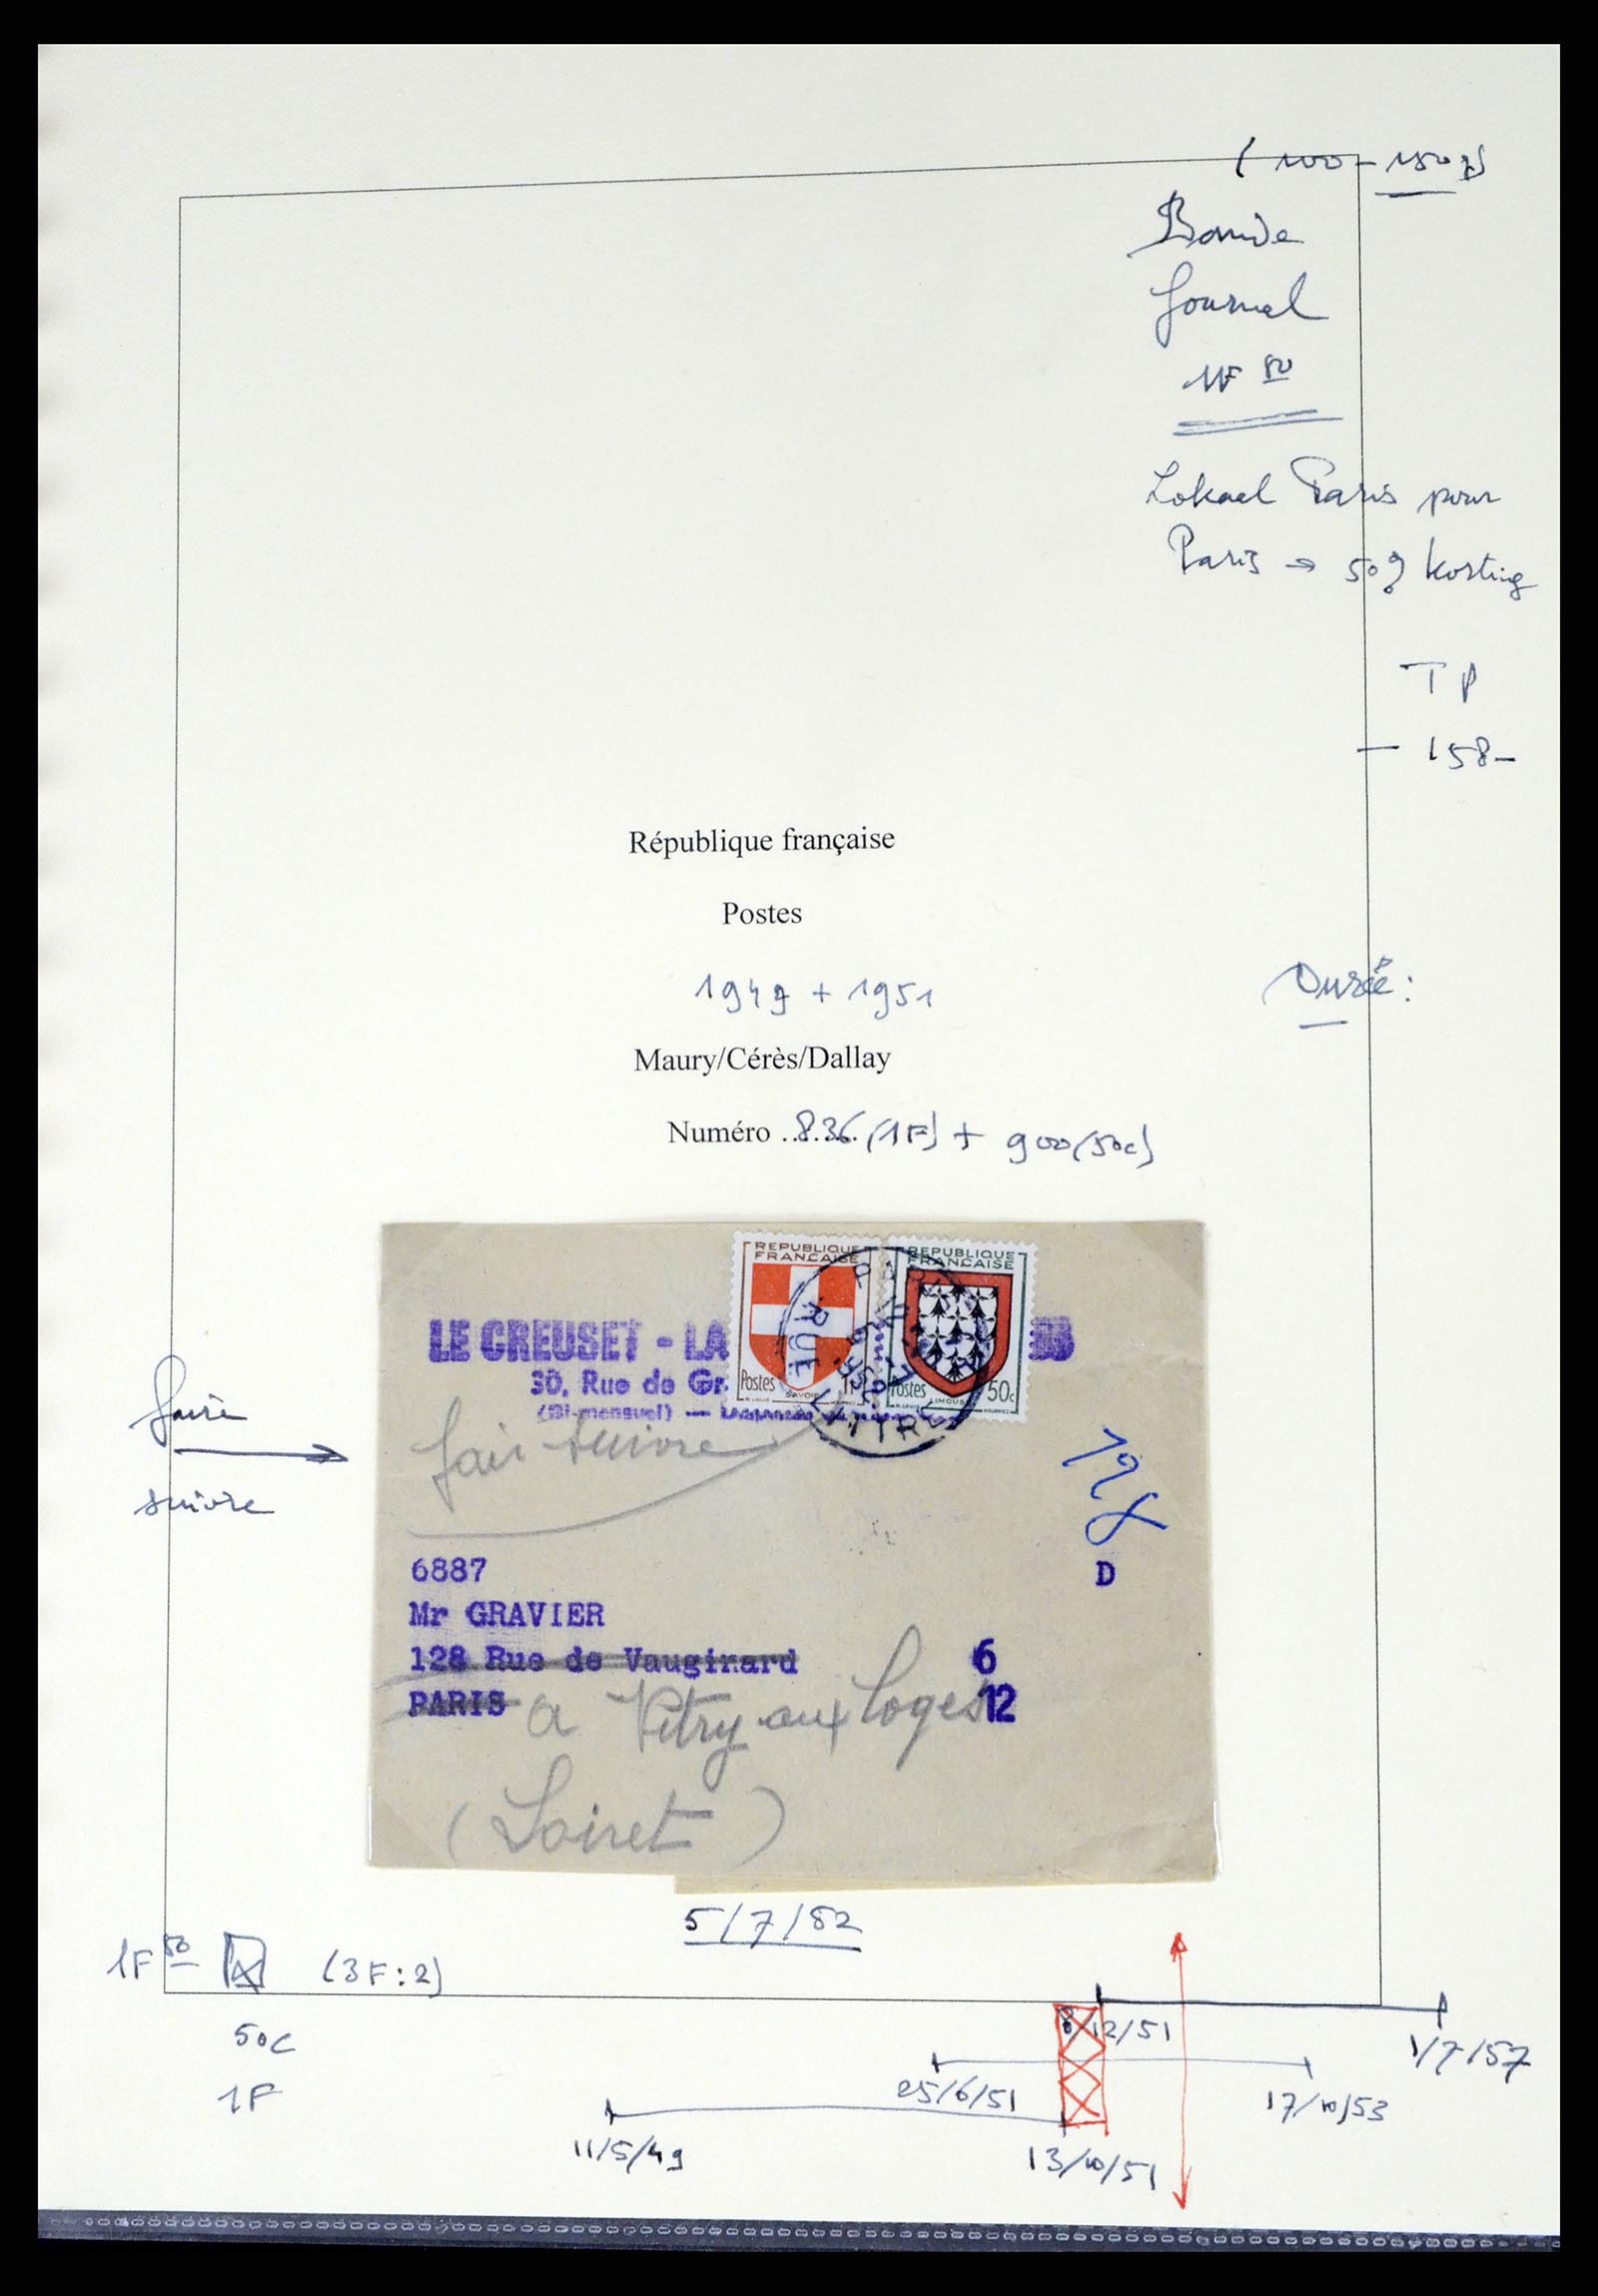 (100 - 150 g)
Bande
Journal
1F 50
Lokaal Paris pour
Paris → 50% korting
TP
- 158-
République française
Postes
1949 + 1951
Durée:
Maury/Cérès/Dallay
Numéro ..836 (1F) + 900 (50c)
REPUBLIQUE
FRANCAISE
Postes
SAVOIE
1F
REPUBLIQUE
FRANCAISE
Postes
LIMOUSIN
50c
RUE LITTRE
LE CREUSET - LA
30, Rue de Gr
(Bi-mensuel) —
faire
suivre
fair suivre
6887
D
Mr GRAVIER
128 Rue de Vaugirard
6
PARIS
12
a Vitry aux Loges
(Loiret)
5/7/52
1F 50 (3F:2)
50c
1F
8/12/51
1/7/57
25/6/51
17/10/53
11/5/49
13/10/51